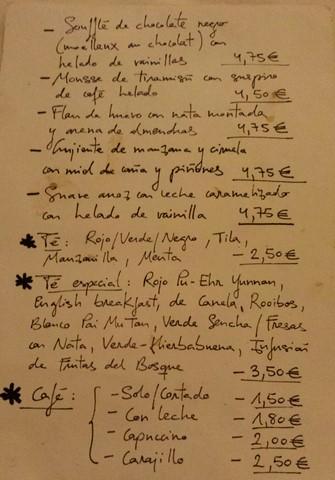 - Soufflé de chocolate negro
(moelleux au chocolat) con
helado de vainillas 4,75€
- Mousse de tiramisú con suspiro
de café helado 4,50€
- Flan de huevo con nata montada
y arena de almendras 4,75€
- Crujiente de manzana y ciruela
con miel de caña y piñones 4,75€
- Suave arroz con leche caramelizado
con helado de vainilla 4,75€
* Té: Rojo/Verde/Negro, Tila,
Manzanilla, Menta - 2,50€
* Té especial: Rojo Pu-Ehr Yunnan,
English breakfast, de Canela, Rooibos,
Blanco Pai Mu Tan, Verde Sencha/Fresas
con Nata, Verde-Hierbabuena, Infusión
de Frutas del Bosque - 3,50€
* Café: - Solo/Cortado - 1,50€
- Con leche - 1,80€
- Capuccino - 2,00€
- Carajillo - 2,50€